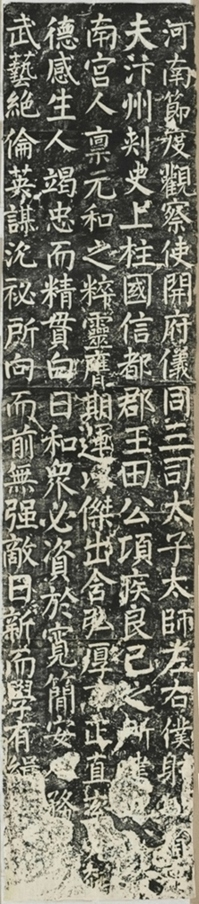 河南節度觀察使開府儀同三司太子太師左右僕射
夫汴州刺史上柱國信都郡王田公頃疾良已之所建
南宮人稟元和之粹靈膺期運以傑出含弘厚下正直
德感生人竭忠而精貫白日和衆必資於寬簡安人務
武藝絕倫英謀沉祕所向而前無強敵日新而學有緝